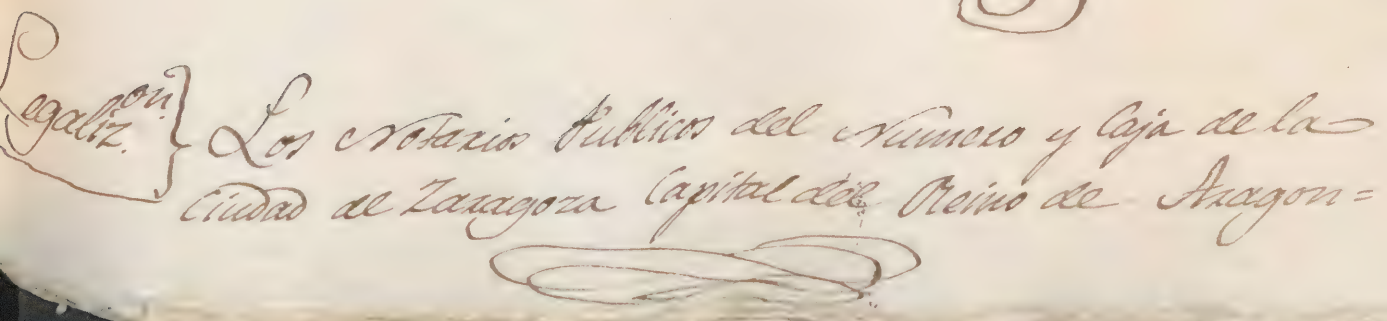 Legaliz.on
Los Notarios Publicos del Numero y Caja de la
Ciudad de Zaragoza Capital del Reino de Aragon=